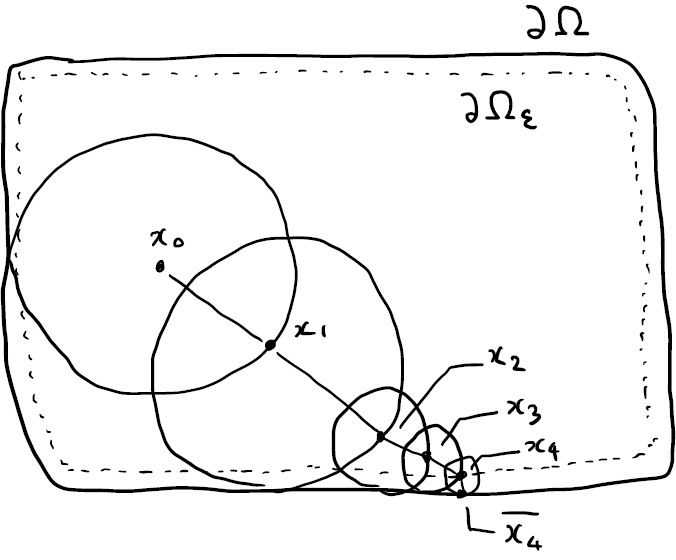 ∂Ω
∂Ω_ε
x₀
x₁
x₂
x₃
x₄
x̄₄